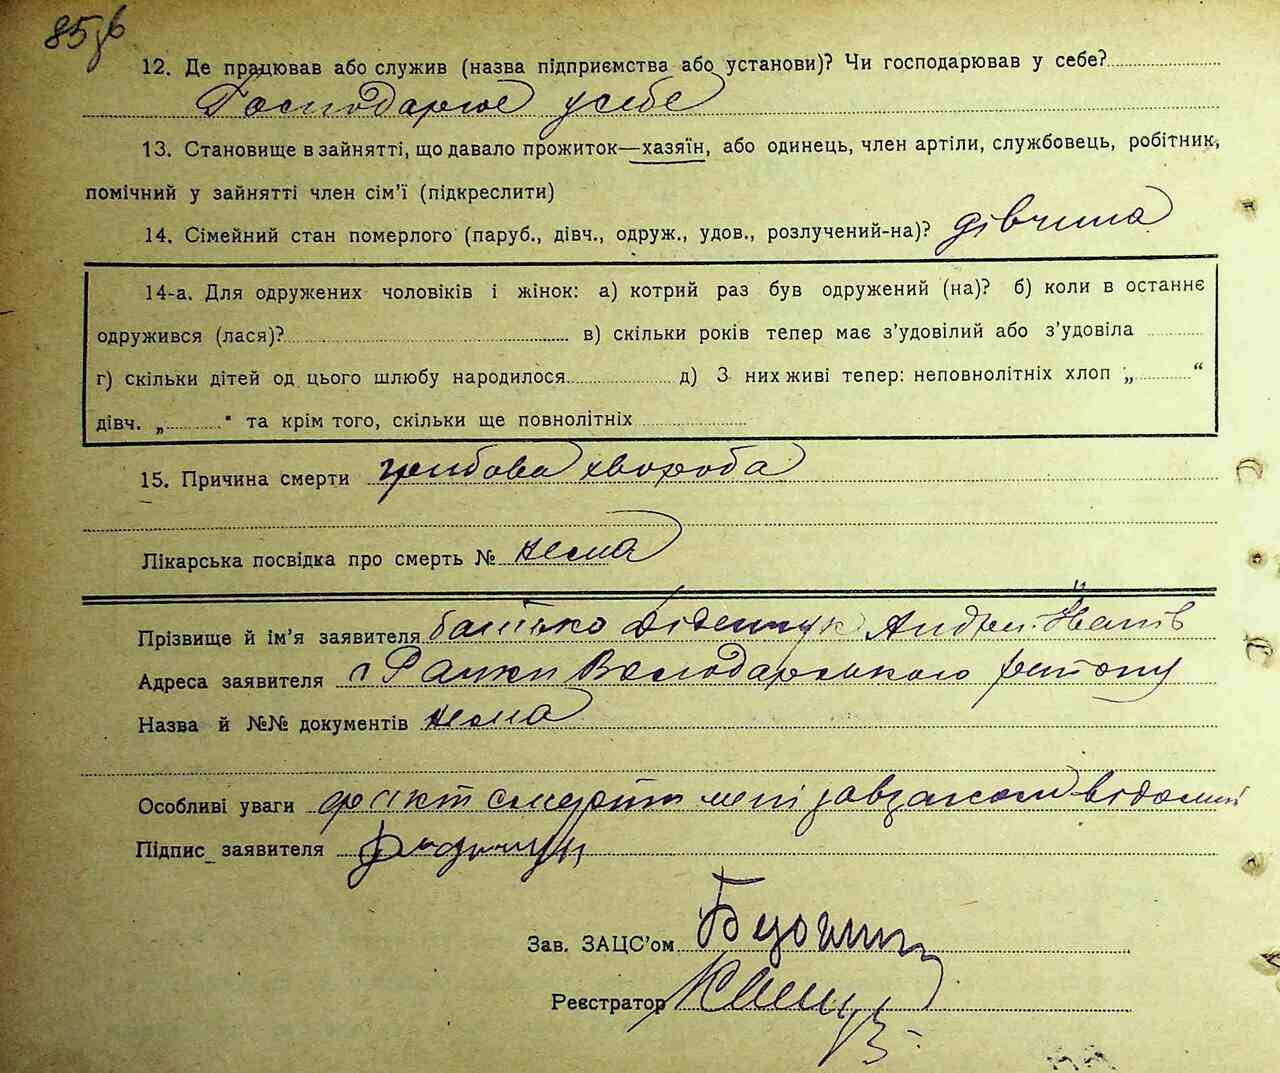 85зв
12. Де працював або служив (назва підприємства або установи)? Чи господарював у себе?
Господарює у себе
13. Становище в зайнятті, що давало прожиток—хазяїн, або одинець, член артіли, службовець, робітник,
помічний у зайнятті член сім'ї (підкреслити)
14. Сімейний стан померлого (паруб., дівч., одруж., удов., розлучений-на)? дівчина
14-а. Для одружених чоловіків і жінок: а) котрий раз був одружений (на)? б) коли в останнє
одружився (лася)? в) скільки років тепер має з'удовілий або з'удовіла
г) скільки дітей од цього шлюбу народилося д) З них живі тепер: неповнолітніх хлоп „ “
дівч. „ “ та крім того, скільки ще повнолітніх
15. Причина смерти грибова хвороба
Лікарська посвідка про смерть № нема
Прізвище й ім'я заявителя батько Діденчук Андрій Іванів
Адреса заявителя Рачки Володарського району
Назва й №№ документів нема
Особливі уваги факт смерти мені завзагсом відомий
Підпис заявителя
Зав. ЗАЦС'ом
Реєстратор